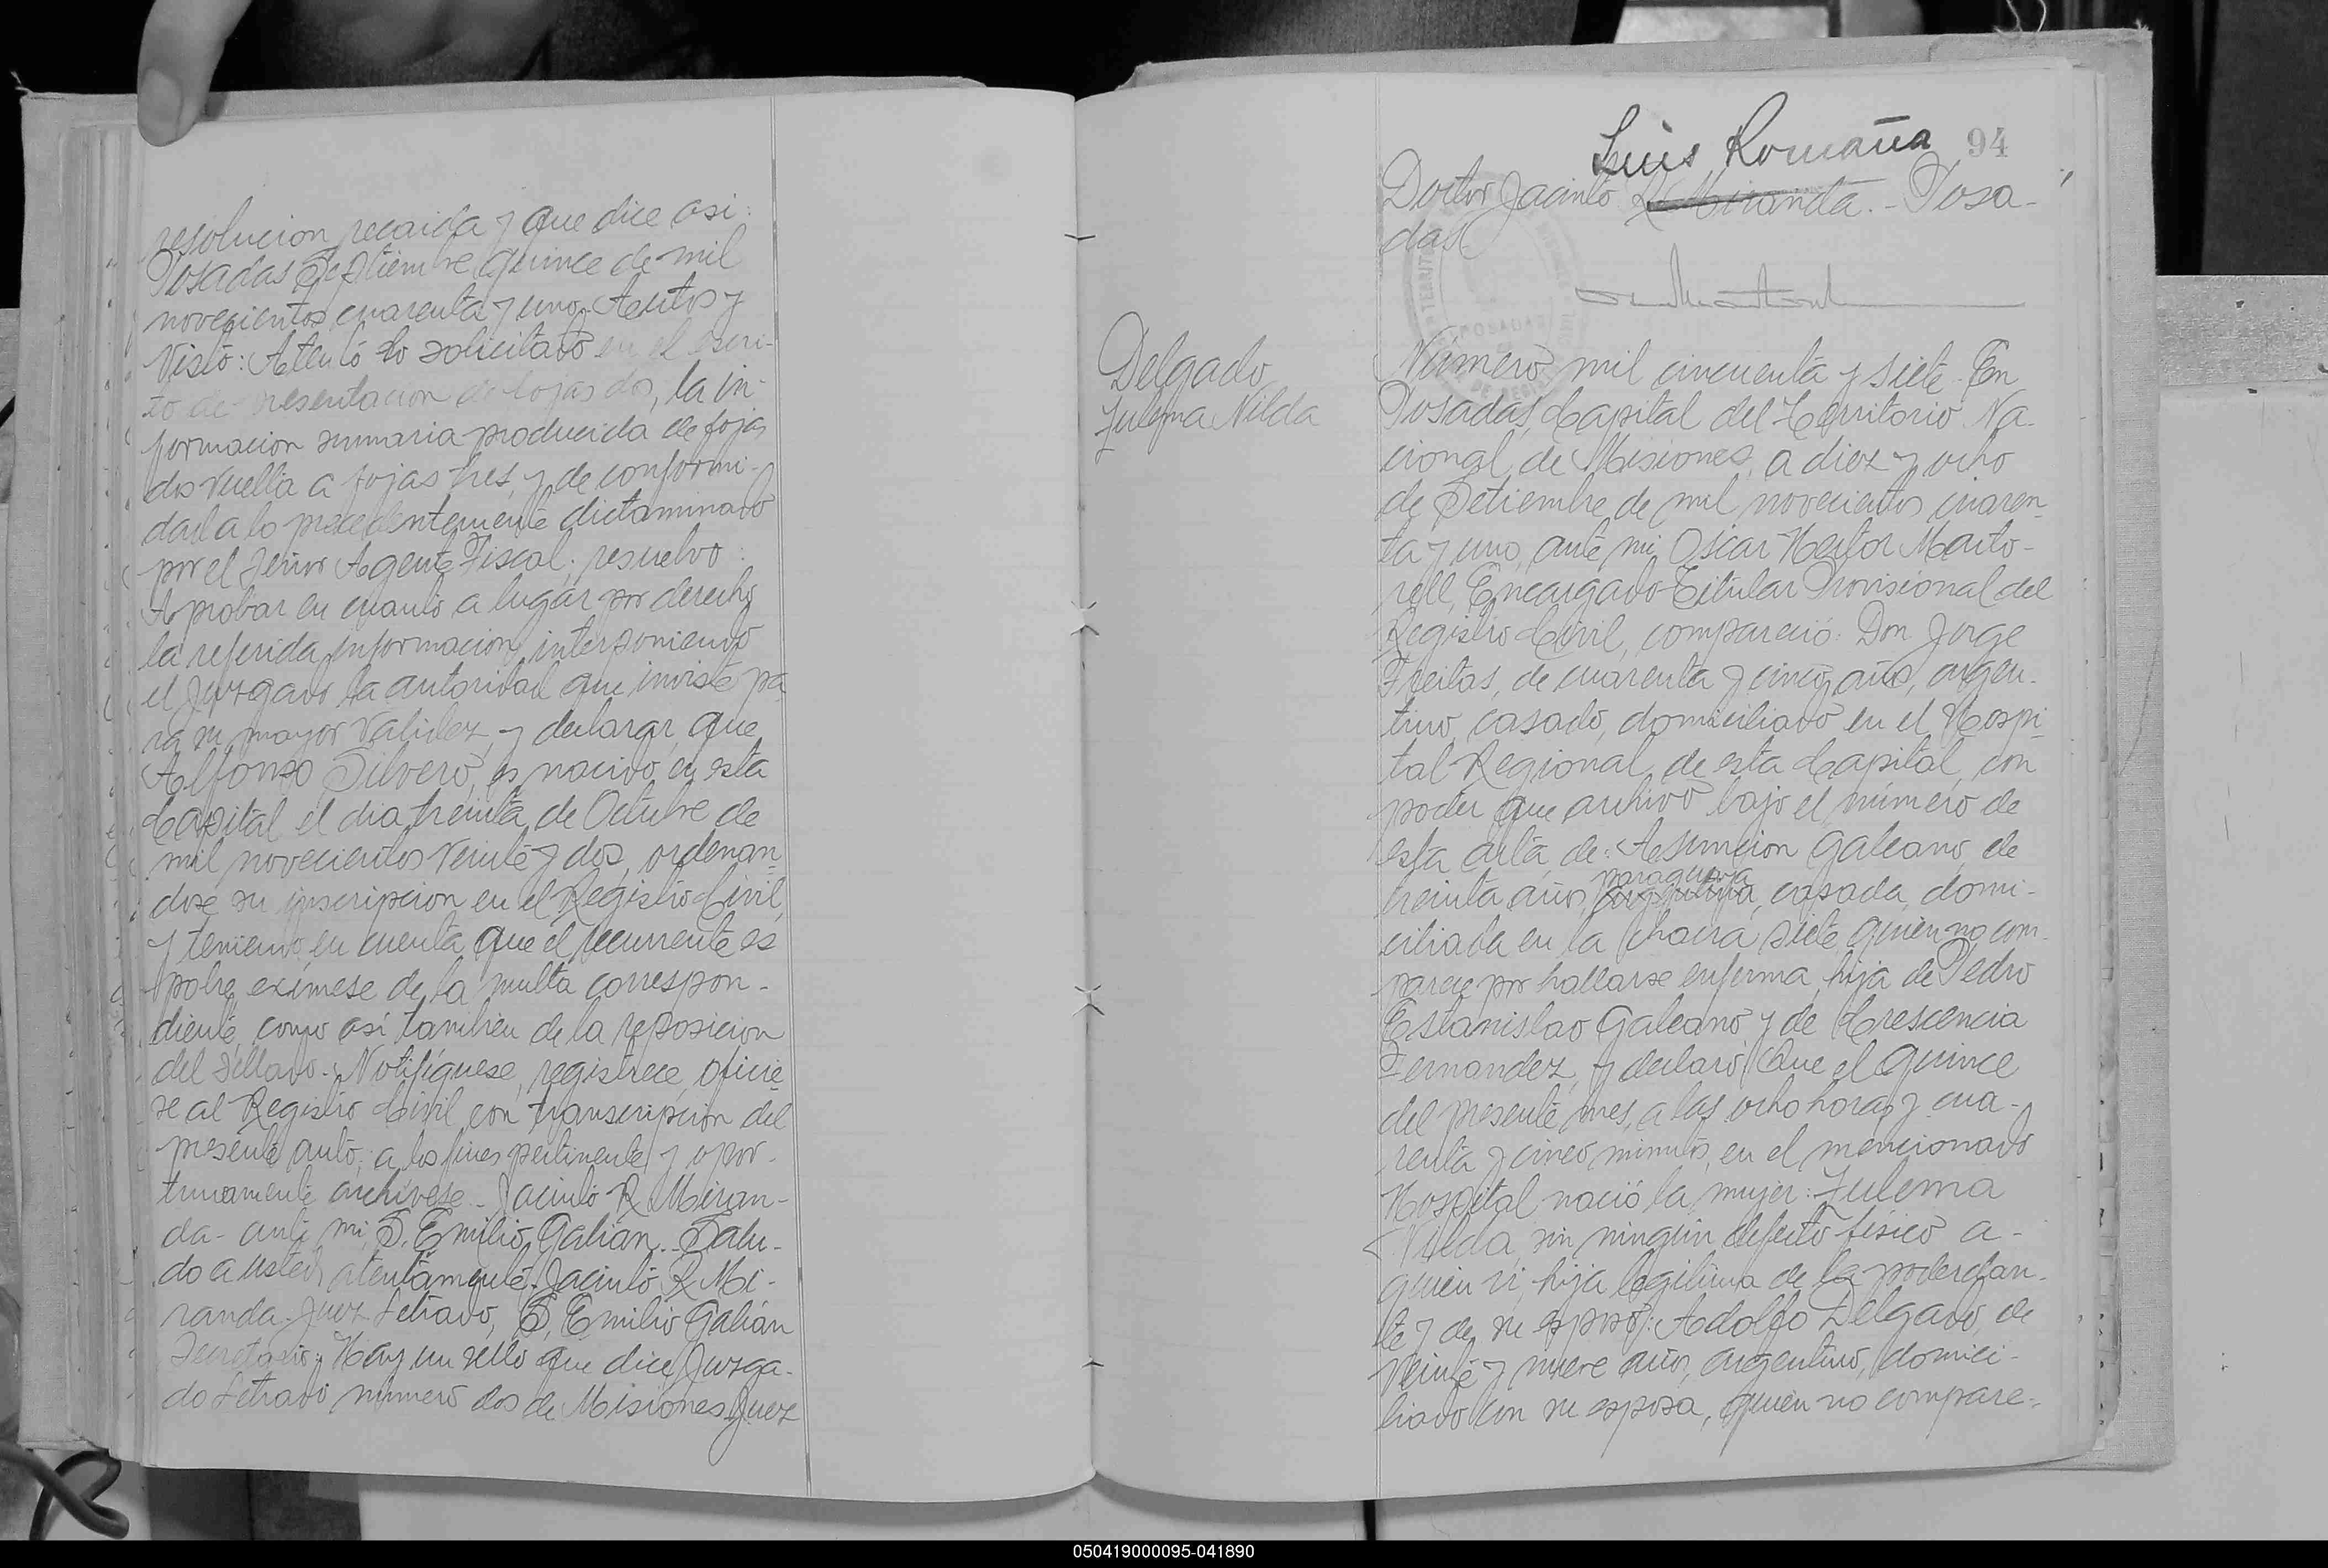 resolucion recaida y que dice asi:
Posadas Septiembre quince de mil
novecientos cuarenta y uno. Autos y
Visto: Atento lo solicitado en el escri-
to de presentacion de fojas dos, la in-
formacion sumaria producida de fojas
dos vuelta a fojas tres, y de conformi-
dad a lo precedentemente dictaminado
por el Señor Agente Fiscal; resuelvo:
Aprobar en cuanto a lugar por derecho
la referida informacion, interponiendo
el Juzgado la autoridad que inviste pa
ra su mayor Validez, y declarar que
Alfonso Silvero, es nacido en esta
Capital el dia treinta de Octubre de
mil novecientos veinte y dos, ordenan-
dose su inscripcion en el Registro Civil,
y teniendo en cuenta que el recurrente es
pobre, exímese de la multa correspon-
diente, como así tambien de la reposicion
del Sellado. Notifíquese, registrece, oficie
se al Registro Civil con transcripcion del
presente auto, a los fines pertinente y opor-
tunamente archívese. Jacinto R Miran-
da - ante mi, S. Emilio Galián. Salu-
do a usted atentamente. Jacinto R Mi-
randa. Juez Letrado, S. Emilio Galián
Secretario. Hay un sello que dice Juzga-
do Letrado número dos de Misiones. Juez
Luis Romaña 94
Doctor Jacinto R Miranda. - Posa-
das.
POSADAS
Delgado
Zulema Nilda
Número mil cincuenta y siete. En
Posadas, Capital del Territorio Na-
cional de Misiones, a diez y ocho
de Setiembre de mil novecientos cuaren-
ta y uno, ante mi Oscar Hector Marto-
rell, Encargado Titular Provisional del
Registro Civil, compareció: Don Jorge
Freitas, de cuarenta y cinco años, argen-
tino, casado, domiciliado en el Hospi-
tal Regional de esta Capital, con
poder que archivo bajo el número de
esta acta, de: Asuncion Galeano, de
paraguaya
treinta años, argentina, casada, domi-
ciliada en la chacra siete, quien no com-
parece por hallarse enferma, hija de Pedro
Estanislao Galeano, y de Crescencia
Fernandez, y declaró: Que el quince
del presente mes, a las ocho horas y cua-
renta y cinco minutos, en el mencionado
Hospital nació la mujer: Zulema
Nilda, sin ningún defecto físico a-
quien vi, hija legitima de la poderdan-
te y de su esposo: Adolfo Delgado, de
veinte y nueve años, argentino, domici-
liado con su esposa, quien no compare-